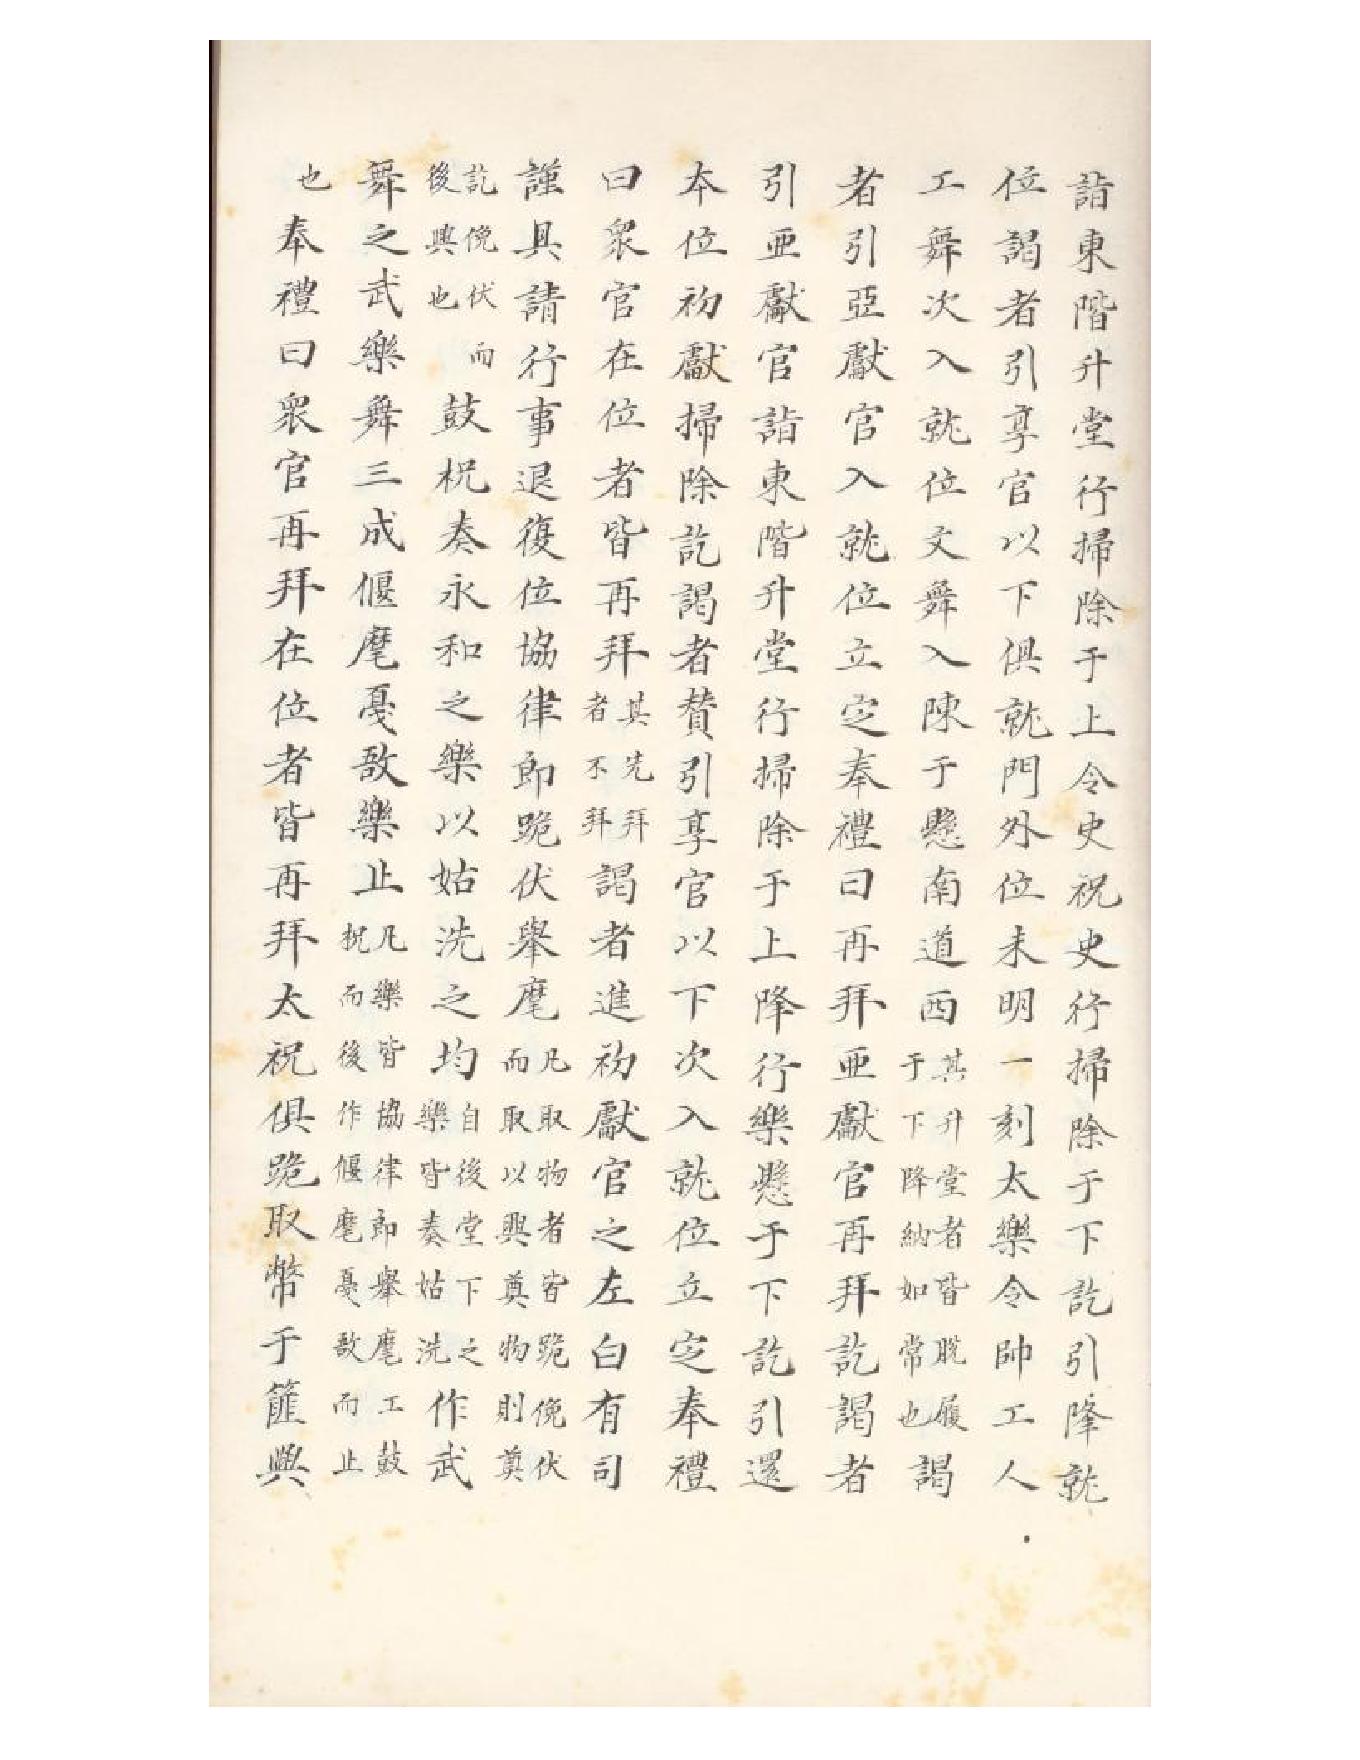 詣東階升堂行掃除于上令史祝史行掃除于下訖引降就
位謁者引享官以下俱就門外位未明一刻太樂令帥工人
工舞次入就位文舞入陳于懸南道西其升堂者皆脫履于下降納如常也謁
者引亞獻官入就位立定奉禮曰再拜亞獻官再拜訖謁者
引亞獻官詣東階升堂行掃除于上降行樂懸于下訖引還
本位初獻掃除訖謁者贊引享官以下次入就位立定奉禮
曰衆官在位者皆再拜其先拜者不拜謁者進初獻官之左白有司
謹具請行事退復位協律郎跪伏舉麾凡取物者皆跪俛伏而取以興奠物則奠
訖俛伏而後興也鼓柷奏永和之樂以姑洗之均自後堂下之樂皆奏姑洗作武
舞之武樂舞三成偃麾戞敔樂止凡樂皆協律郎舉麾工鼓柷而後作偃麾戞敔而止
也奉禮曰衆官再拜在位者皆再拜太祝俱跪取幣于篚興